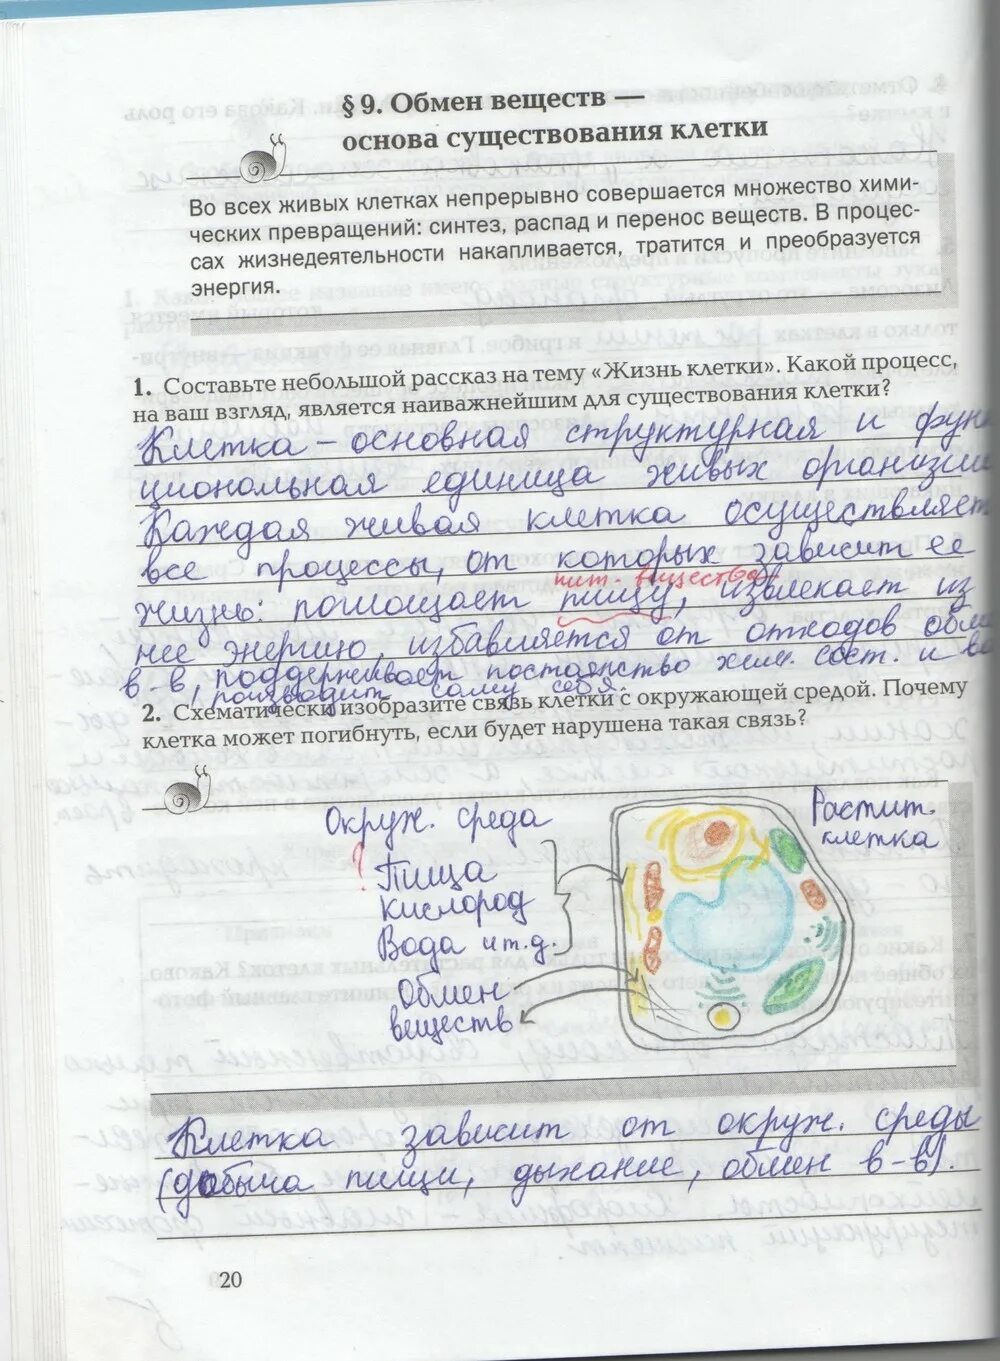 § 9. Обмен веществ —
основа существования клетки
Во всех живых клетках непрерывно совершается множество хими-
ческих превращений: синтез, распад и перенос веществ. В процес-
сах жизнедеятельности накапливается, тратится и преобразуется
энергия.
1. Составьте небольшой рассказ на тему «Жизнь клетки». Какой процесс,
на ваш взгляд, является наиважнейшим для существования клетки?
Клетка – основная структурная и функ
циональная единица живых организм
Каждая живая клетка осуществляет
все процессы, от которых зависит ее
пит. вещества
жизнь: поглощает пищу, извлекает из
нее энергию, избавляется от отходов обм
в-в, поддерживает постоянство хим. сост. и во
производит саму себя.
2. Схематически изобразите связь клетки с окружающей средой. Почему
клетка может погибнуть, если будет нарушена такая связь?
Окруж. среда
Растит.
клетка
? Пища
кислород
Вода и т.д.
Обмен
веществ
Клетка зависит от окруж. среды
(добыча пищи, дыхание, обмен в-в).
20